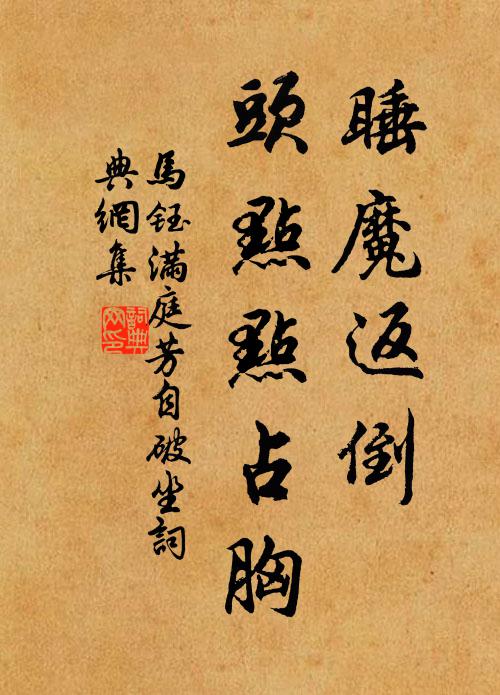 睡魔返倒
頭點點占胸
馬鈺滿庭芳自破坐詞
典網集
詞典
网印